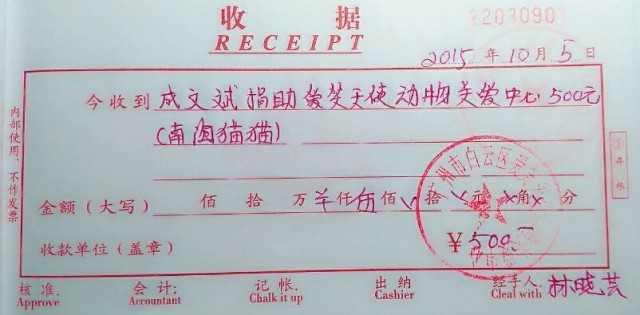 收 据 2203090
RECEIPT
2015 年 10 月 5 日
今收到 成文斌捐助爱笑天使动物关爱中心 500元
(南国猫猫)
金额(大写) 佰 拾 万 仟 伍 佰 拾 元 角 分
收款单位(盖章) ¥ 500
广州市白云区
内部使用,不作发票
①存根
核准. 会计: 记帐. 出纳 经手人: 林晓芸
Approve Accountant Chalk it up Cashier Cleal with